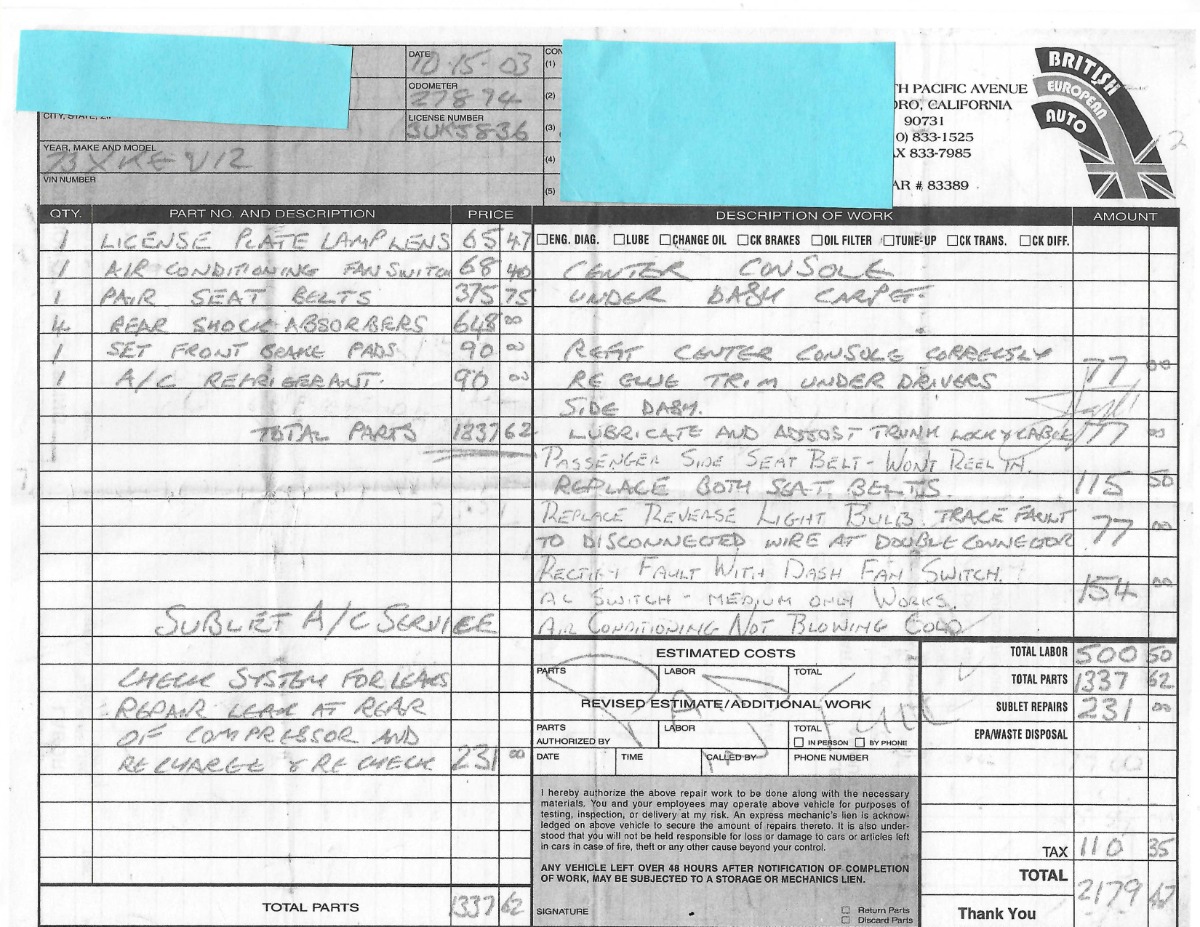 DATE 10-15-03
ODOMETER 27874
LICENSE NUMBER 3UKS836
CITY, STATE, ZIP
YEAR, MAKE AND MODEL
73 XKE V12
VIN NUMBER
CON
(1)
(2)
(3)
(4)
(5)
TH PACIFIC AVENUE
DRO, CALIFORNIA
90731
0) 833-1525
AX 833-7985
AR # 83389
BRITISH
EUROPEAN
AUTO
12
QTY. PART NO. AND DESCRIPTION PRICE
1 LICENSE PLATE LAMP LENS 65 47
1 AIR CONDITIONING FAN SWITCH 68 40
1 PAIR SEAT BELTS 375 75
4 REAR SHOCK ABSORBERS 648 00
1 SET FRONT BRAKE PADS 90 00
1 A/C REFRIGERANT. 90 00
TOTAL PARTS 1337 62
SUBLET A/C SERVICE
CHECK SYSTEM FOR LEAKS
REPAIR LEAK AT REAR
OF COMPRESSOR AND
RECHARGE & RE CHECK 231 00
TOTAL PARTS 1337 62
DESCRIPTION OF WORK AMOUNT
ENG. DIAG. LUBE CHANGE OIL CK BRAKES OIL FILTER TUNE-UP CK TRANS. CK DIFF.
CENTER CONSOLE
UNDER DASH CARPET
REFIT CENTER CONSOLE CORRECTLY
RE GLUE TRIM UNDER DRIVERS 77 00
SIDE DASH.
LUBRICATE AND ADJUST TRUNK LOCK/CABLE 77 00
PASSENGER SIDE SEAT BELT - WONT REEL IN.
REPLACE BOTH SEAT BELTS. 115 50
REPLACE REVERSE LIGHT BULB. TRACE FAULT
TO DISCONNECTED WIRE AT DOUBLE CONNECTOR 77 00
RECTIFY FAULT WITH DASH FAN SWITCH.
AC SWITCH - MEDIUM ONLY WORKS. 154 00
AIR CONDITIONING NOT BLOWING COLD
ESTIMATED COSTS
PARTS LABOR TOTAL
REVISED ESTIMATE/ADDITIONAL WORK
PARTS LABOR TOTAL
AUTHORIZED BY IN PERSON BY PHONE
DATE TIME CALLED BY PHONE NUMBER
PAID
I hereby authorize the above repair work to be done along with the necessary
materials. You and your employees may operate above vehicle for purposes of
testing, inspection, or delivery at my risk. An express mechanic's lien is acknow-
ledged on above vehicle to secure the amount of repairs thereto. It is also under-
stood that you will not be held responsible for loss or damage to cars or articles left
in cars in case of fire, theft or any other cause beyond your control.
ANY VEHICLE LEFT OVER 48 HOURS AFTER NOTIFICATION OF COMPLETION
OF WORK, MAY BE SUBJECTED TO A STORAGE OR MECHANICS LIEN.
SIGNATURE
Return Parts
Discard Parts
TOTAL LABOR 500 50
TOTAL PARTS 1337 62
SUBLET REPAIRS 231 00
EPA/WASTE DISPOSAL
TAX 110 35
TOTAL 2179 47
Thank You